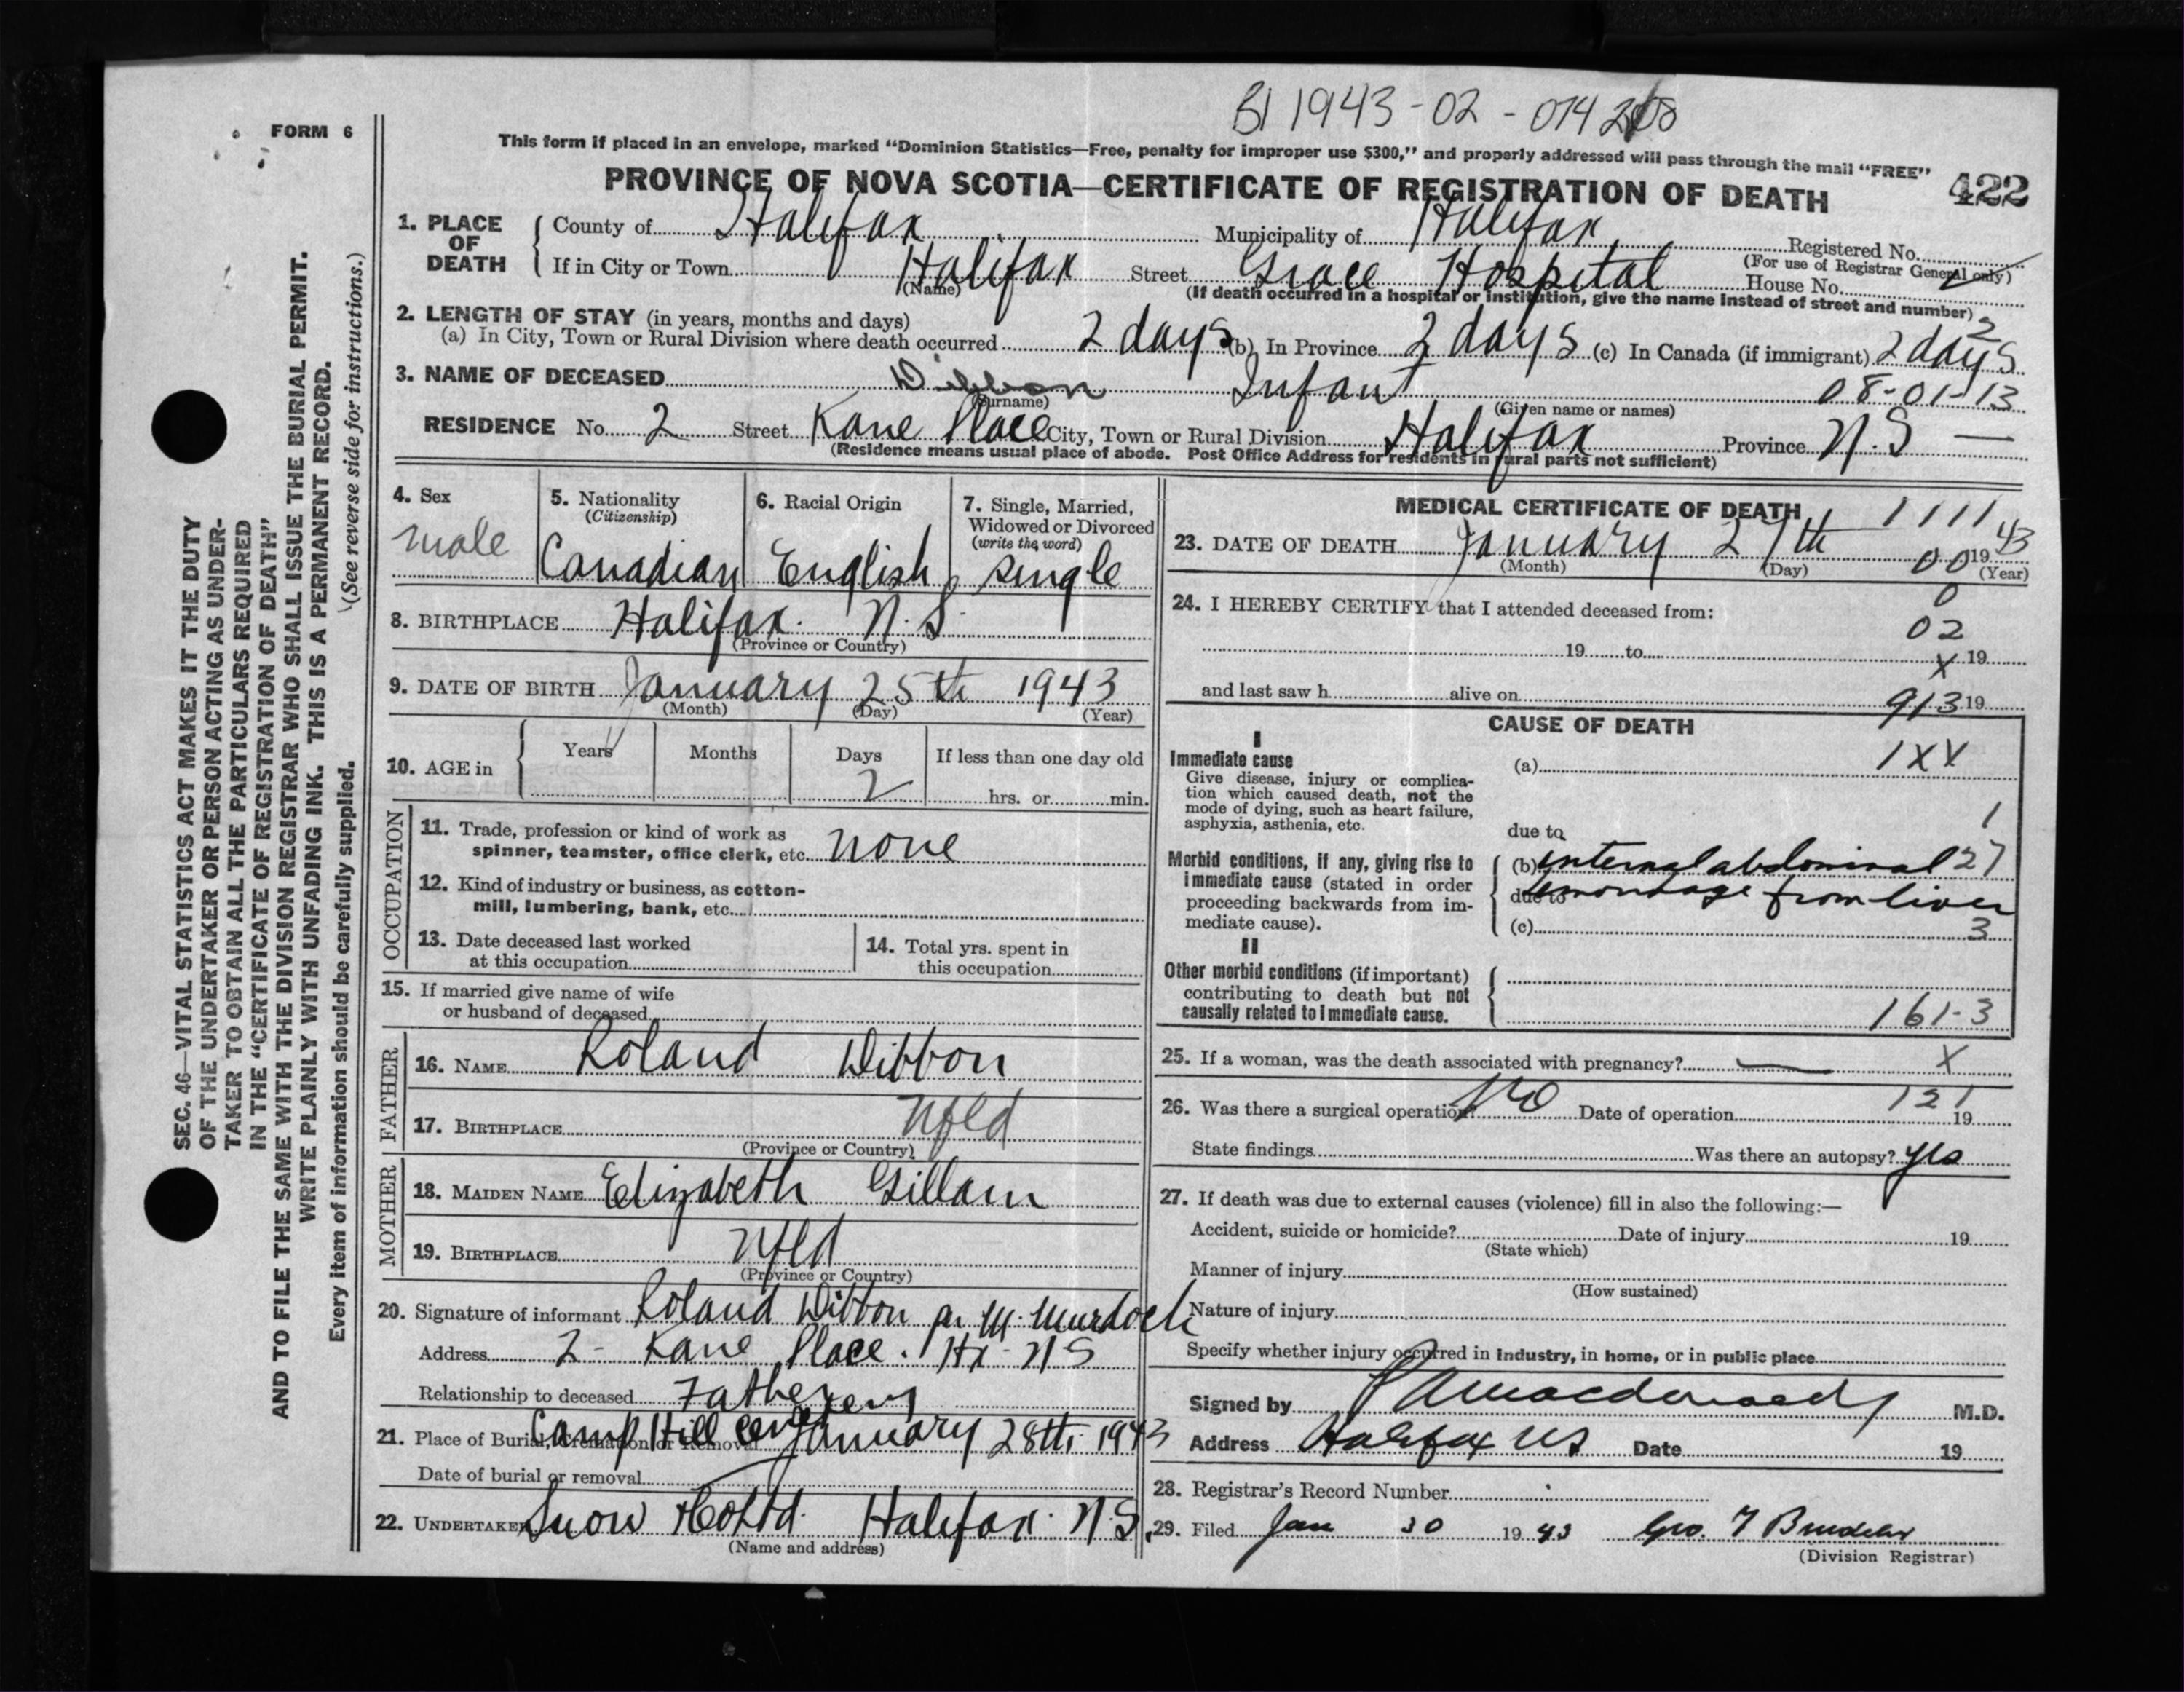 B1 1943-02-014208
FORM 6
This form if placed in an envelope, marked "Dominion Statistics—Free, penalty for improper use $300," and properly addressed will pass through the mail "FREE"
PROVINCE OF NOVA SCOTIA—CERTIFICATE OF REGISTRATION OF DEATH 422
1. PLACE OF DEATH { County of Halifax Municipality of Halifax Registered No.
(For use of Registrar General only)
If in City or Town Halifax Street Grace Hospital House No.
(Name) (If death occurred in a hospital or institution, give the name instead of street and number)
2. LENGTH OF STAY (in years, months and days) 2
(a) In City, Town or Rural Division where death occurred 2 days (b) In Province 2 days (c) In Canada (if immigrant) 2 days
3. NAME OF DECEASED Dibbon Infant 08-01-13
(Surname) (Given name or names)
RESIDENCE No. 2 Street Kane Place City, Town or Rural Division Halifax Province N.S —
(Residence means usual place of abode. Post Office Address for residents in rural parts not sufficient)
4. Sex male
5. Nationality (Citizenship) Canadian
6. Racial Origin English
7. Single, Married, Widowed or Divorced (write the word) single
8. BIRTHPLACE Halifax. N.S.
(Province or Country)
9. DATE OF BIRTH January 25th 1943
(Month) (Day) (Year)
10. AGE in { Years Months Days If less than one day old
2 hrs. or min.
OCCUPATION
11. Trade, profession or kind of work as spinner, teamster, office clerk, etc. none
12. Kind of industry or business, as cotton-mill, lumbering, bank, etc.
13. Date deceased last worked at this occupation
14. Total yrs. spent in this occupation
15. If married give name of wife or husband of deceased
FATHER
16. NAME Roland Dibbon
17. BIRTHPLACE Nfld
(Province or Country)
MOTHER
18. MAIDEN NAME Elizabeth Gillam
19. BIRTHPLACE Nfld
(Province or Country)
20. Signature of informant Roland Dibbon per M. Murdoch
Address 2 - Kane Place. Hx - NS
Relationship to deceased Father
21. Place of Burial, Cremation or Removal Camp Hill Cemetery January 28th 1943
Date of burial or removal
22. UNDERTAKER Snow & Co Ltd. Halifax. N.S.
(Name and address)
MEDICAL CERTIFICATE OF DEATH 1111
23. DATE OF DEATH January 27th 00 1943
(Month) (Day) (Year)
24. I HEREBY CERTIFY that I attended deceased from: 0
02
19 to X 19
and last saw h alive on 913 19
CAUSE OF DEATH
I
Immediate cause (a) 1XX
Give disease, injury or complication which caused death, not the mode of dying, such as heart failure, asphyxia, asthenia, etc.
due to 1
Morbid conditions, if any, giving rise to immediate cause (stated in order proceeding backwards from immediate cause).
(b) internal abdominal 27
due to from liver
(c) 3
II
Other morbid conditions (if important) contributing to death but not causally related to immediate cause.
161-3
25. If a woman, was the death associated with pregnancy? — X
26. Was there a surgical operation? No Date of operation 121 19
State findings Was there an autopsy? yes
27. If death was due to external causes (violence) fill in also the following:—
Accident, suicide or homicide? Date of injury 19
(State which)
Manner of injury
(How sustained)
Nature of injury
Specify whether injury occurred in industry, in home, or in public place
Signed by M.D.
Address Halifax NS Date 19
28. Registrar's Record Number
29. Filed Jan 30 1943 Geo. F
(Division Registrar)
SEC. 46—VITAL STATISTICS ACT MAKES IT THE DUTY
OF THE UNDERTAKER OR PERSON ACTING AS UNDER-
TAKER TO OBTAIN ALL THE PARTICULARS REQUIRED
IN THE "CERTIFICATE OF REGISTRATION OF DEATH"
AND TO FILE THE SAME WITH THE DIVISION REGISTRAR WHO SHALL ISSUE THE BURIAL PERMIT.
WRITE PLAINLY WITH UNFADING INK. THIS IS A PERMANENT RECORD.
Every item of information should be carefully supplied. (See reverse side for instructions.)